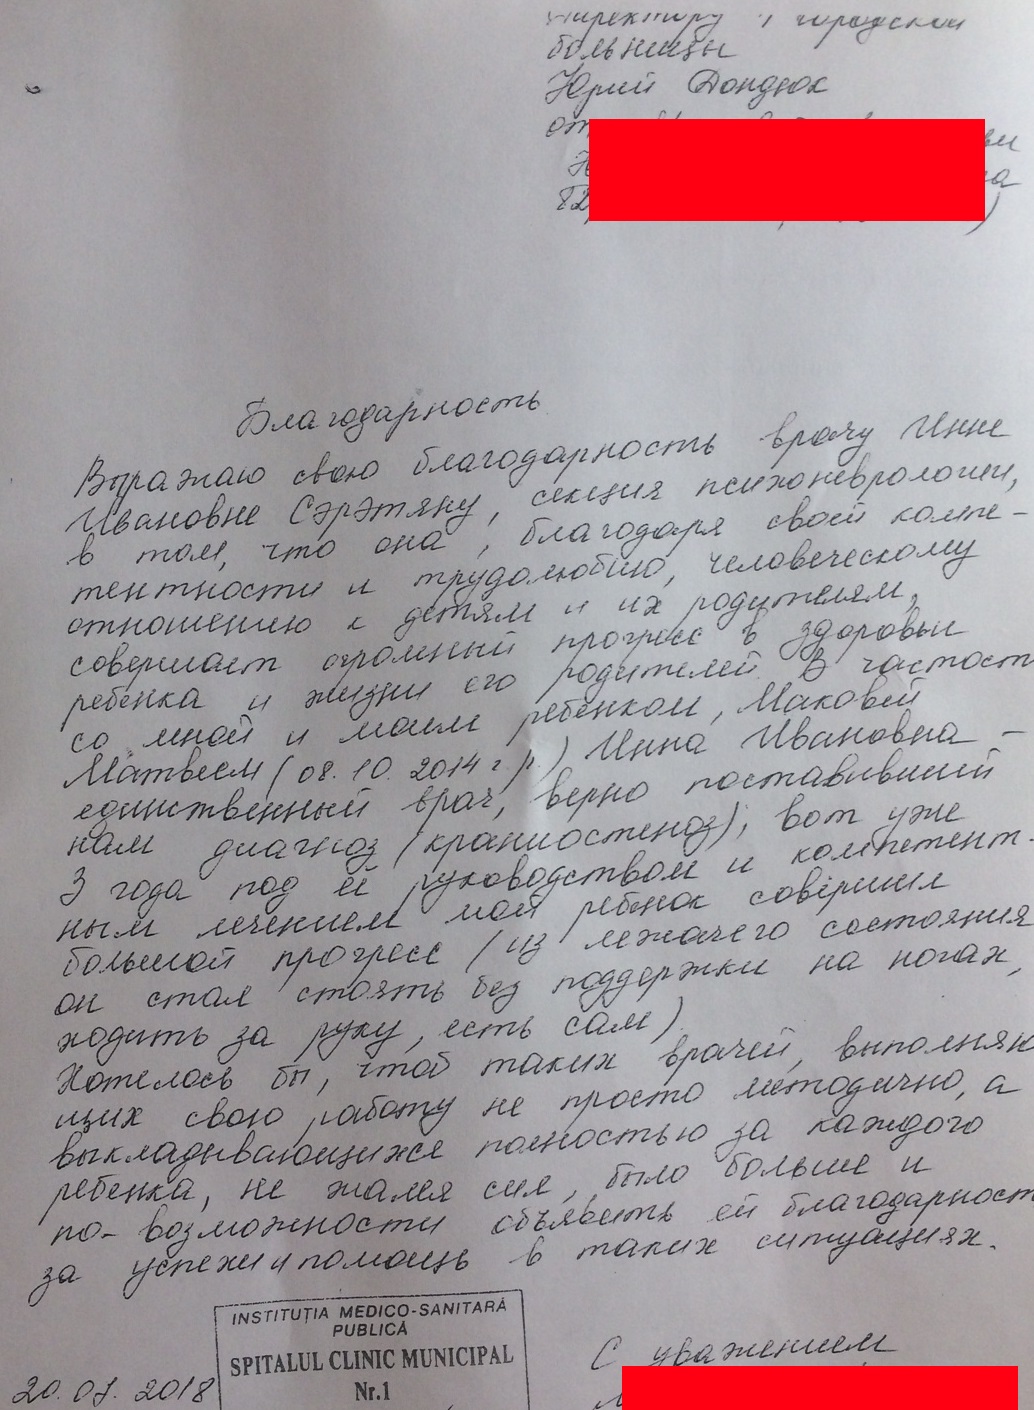 Директору 1 городской
больницы
Юрий Дондюк
от
Благодарность
Выражаю свою благодарность врачу Инне
Ивановне Сэрэтяну, секция психоневрологии,
в том, что она, благодаря своей компе-
тентности и трудолюбию, человеческому
отношению к детям и их родителям,
совершает огромный прогресс в здоровьи
ребёнка и жизни его родителей. В частост
со мной и моим ребёнком, Маковей
Матвеем (08.10.2014 г.р.) Инна Ивановна -
единственный врач, верно поставивший
нам диагноз (краниостеноз), вот уже
3 года под её руководством и компетент-
ным лечением мой ребёнок совершил
большой прогресс (из лежачего состояния
он стал стоять без поддержки на ногах,
ходить за руку, есть сам).
Хотелось бы, чтоб таких врачей, выполняю
щих свою работу не просто методично, а
выкладывающихся полностью за каждого
ребёнка, не жалея сил, было больше и
по-возможности объявить ей благодарност
за успехи и помощь в таких ситуациях.
INSTITUȚIA MEDICO-SANITARĂ
PUBLICĂ
SPITALUL CLINIC MUNICIPAL
Nr.1
С уважением
2018